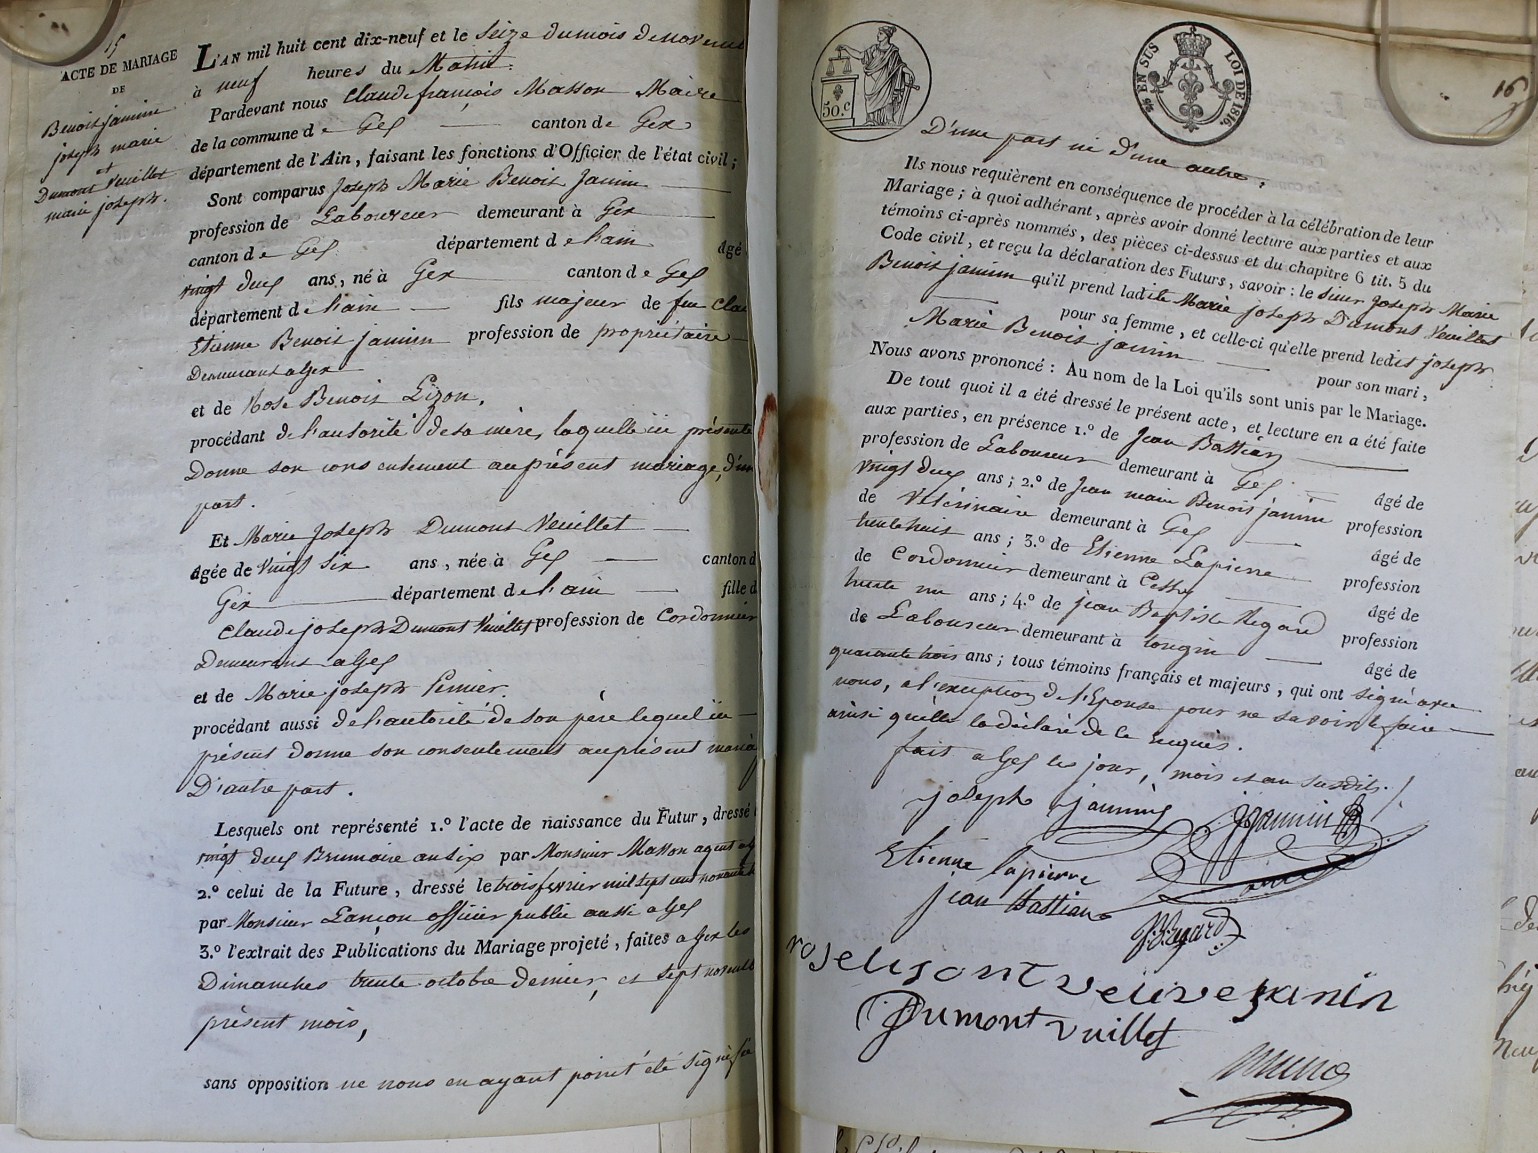 15
ACTE DE MARIAGE
DE
Benoit janin
joseph marie
et
Dumont Veuillet
marie joseph.
L'AN mil huit cent dix-neuf et le Seize du mois de novemb
à neuf heures du Matin.
Pardevant nous Claude françois Masson Maire
de la commune de Gex canton de Gex
département de l'Ain, faisant les fonctions d'Officier de l'état civil;
Sont comparus Joseph Marie Benoit Janin
profession de Laboureur demeurant à Gex
canton de Gex département de L'ain âgé
vingt deux ans, né à Gex canton de Gex
département de L'ain fils majeur de feu Clau
Etienne Benoit janin profession de propriétaire
Demeurant a Gex
et de Rose Benoit Lizon,
procédant de L'autorité de sa mère, laquelle ici présente
Donne son consentement au présent mariage, d'une
part.
Et Marie Joseph Dumont Veuillet
âgée de vingt six ans, née à Gex canton d
Gex département de L'ain fille d
Claude joseph Dumont Veuillet profession de Cordonnier
Demeurant a Gex
et de Marie joseph Pernier.
procédant aussi de L'autorité de son père lequel ici
présent donne son consentement au présent maria
D'autre part.
Lesquels ont représenté 1.º l'acte de naissance du Futur, dressé
vingt deux Brumaire an six par Monsieur Masson agent a G
2.º celui de la Future, dressé le trois fevrier mil sept cent nonante
par Monsieur Lançon officier public aussi a Gex
3.º l'extrait des Publications du Mariage projeté, faites a Gex les
Dimanches trente octobre dernier, et sept novemb
présent mois,
sans opposition ne nous en ayant point été signifié
50.c
EN SUS
LOI DE 1816.
16
D'une part ni D'une autre.
Ils nous requièrent en conséquence de procéder à la célébration de leur
Mariage; à quoi adhérant, après avoir donné lecture aux parties et aux
témoins ci-après nommés, des pièces ci-dessus et du chapitre 6 tit. 5 du
Code civil, et reçu la déclaration des Futurs, savoir: le Sieur Joseph Marie
Benoit janin qu'il prend ladite Marie joseph Dumont Veuillet
pour sa femme, et celle-ci qu'elle prend ledit joseph
Marie Benoit janin pour son mari,
Nous avons prononcé: Au nom de la Loi qu'ils sont unis par le Mariage.
De tout quoi il a été dressé le présent acte, et lecture en a été faite
aux parties, en présence 1.º de Jean Bastian
profession de Laboureur demeurant à Gex âgé de
vingt deux ans; 2.º de Jean marie Benoit janin profession
de Vétérinaire demeurant à Gex âgé de
trente huit ans; 3.º de Etienne Lapierre profession
de Cordonnier demeurant à Cessy âgé de
trente un ans; 4.º de jean Baptiste Regard profession
de Laboureur demeurant à tougin âgé de
quarante trois ans; tous témoins français et majeurs, qui ont signé avec
nous, a l'exception de l'Epouse pour ne savoir le faire
ainsi qu'elle la déclaré de ce requis.
fait a Gex les jour, mois et an susdits.
joseph janin
J janin
Etienne lapierre
jean Bastian
JB Regard
rose lison veuve janin
Dumont vuillet